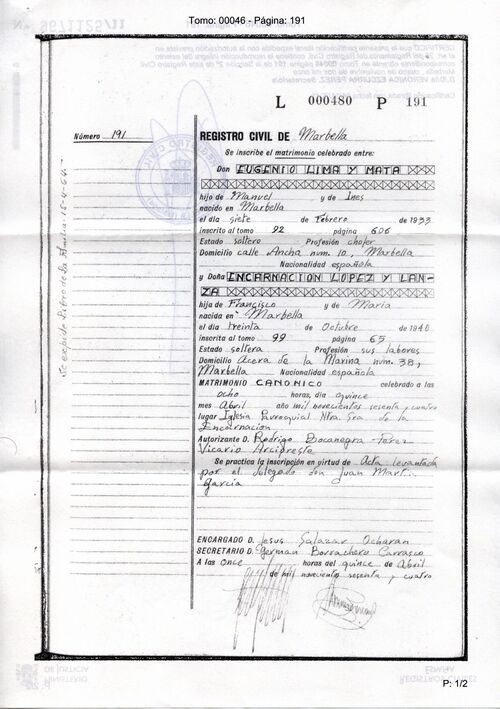 Tomo: 00046 - Página: 191
L 000480 P 191
Número 191
REGISTRO CIVIL DE Marbella
Se inscribe el matrimonio celebrado entre:
Don EUGENIO LIMA Y MATA
hijo de Manuel y de Ines
nacido en Marbella
el día siete de Febrero de 1933
inscrito al tomo 92 página 606
Estado soltero Profesión chofer
Domicilio calle Ancha num. 10, Marbella
Nacionalidad española
y Doña ENCARNACION LOPEZ Y LAN-
ZA
hija de Francisco y de Maria
nacida en Marbella
el día treinta de Octubre de 1940
inscrita al tomo 99 página 65
Estado soltera Profesión sus labores
Domicilio Acera de la Marina num. 38,
Marbella Nacionalidad española
MATRIMONIO CANONICO celebrado a las
ocho horas, día quince
mes Abril año mil novecientos sesenta y cuatro
lugar Iglesia Parroquial Ntra. Sra de la
Encarnacion
Autorizante D. Rodrigo Bocanegra Perez
Vicario Arcipreste
Se practica la inscripción en virtud de Acta levantada
por el delegado don Juan Martin
Garcia
ENCARGADO D. Jesus Salazar Ocharan
SECRETARIO D. German Borrachero Carrasco
A las once horas del quince de Abril
de mil novecientos sesenta y cuatro
Se expide Libro de la Familia
P: 1/2